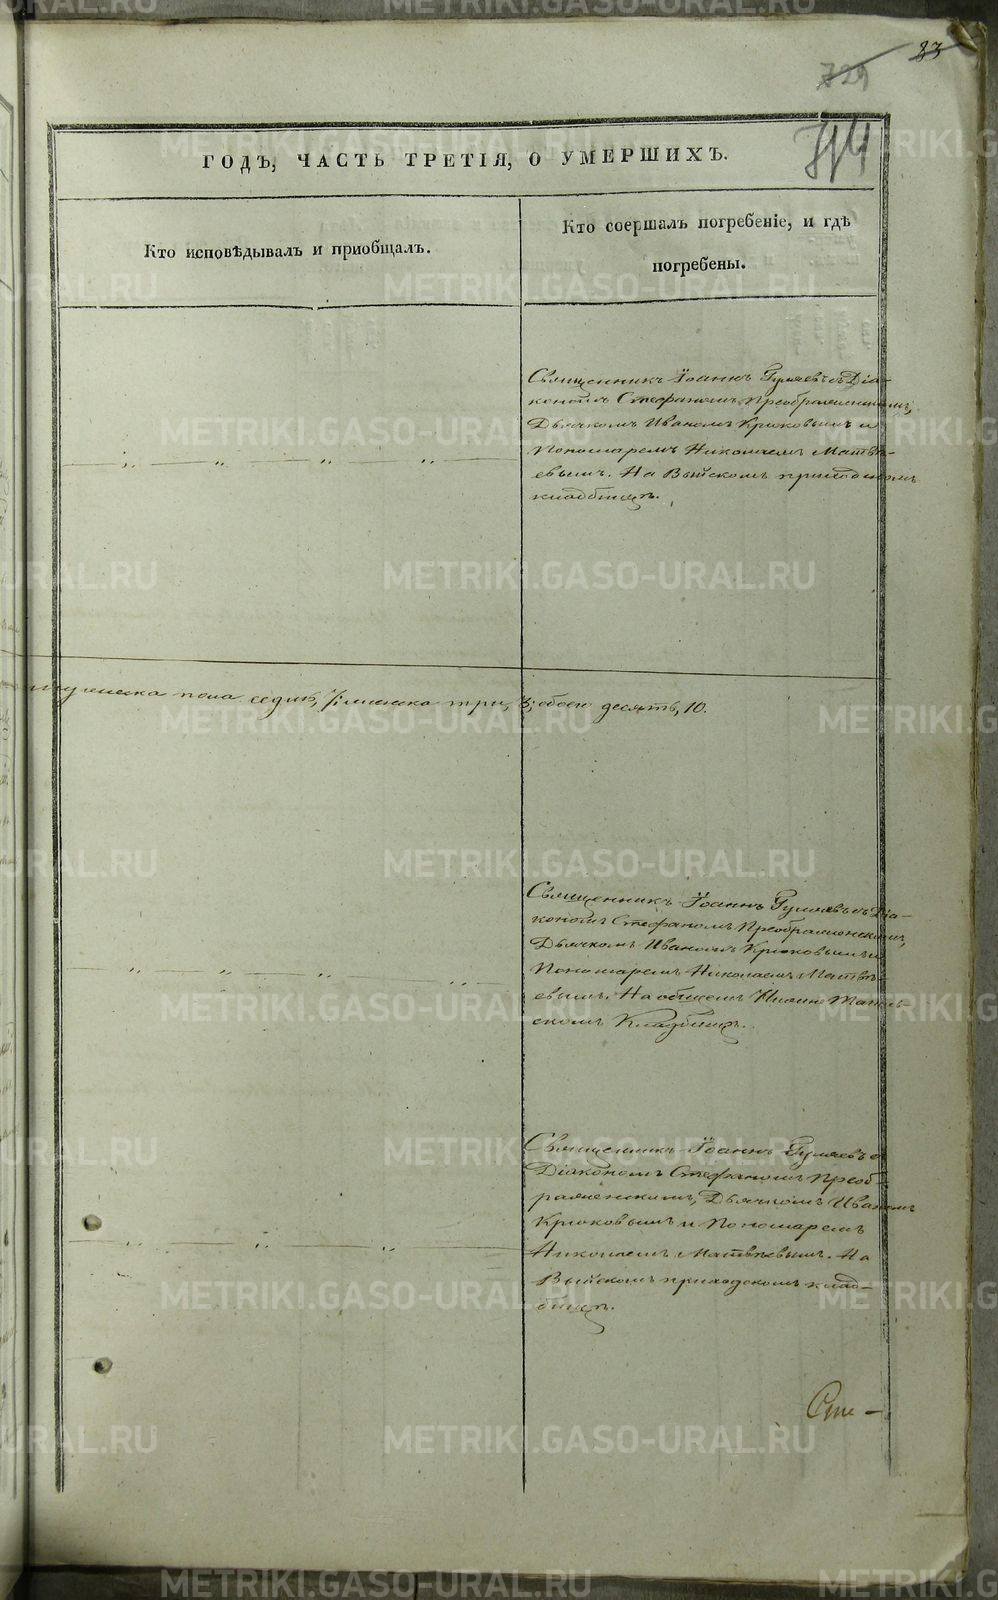 83
729
744
ГОДЪ, ЧАСТЬ ТРЕТІЯ, О УМЕРШИХЪ.
Кто исповѣдывалъ и пріобщалъ.
Кто соершалъ погребеніе, и гдѣ
погребены.
Священникъ Іоаннъ Гуляевъ съ Діа-
кономъ Стефаномъ Преображенскимъ,
Дьячкомъ Иваномъ Крюковымъ и
Пономаремъ Николаемъ Матвѣ-
евымъ. На Выйскомъ приходскомъ
кладбищѣ.
мужеска пола седмь, 7; женска три, 3; обоего десять, 10.
Священникъ Іоаннъ Гуляевъ съ Діа-
кономъ Стефаномъ Преображенскимъ,
Дьячкомъ Иваномъ Крюковымъ и
Пономаремъ Николаемъ Матвѣ-
евымъ. На общемъ Нижне Тагиль-
скомъ Кладбищѣ.
Священникъ Іоаннъ Гуляевъ съ
Діакономъ Стефаномъ Преоб-
раженскимъ, Дьячкомъ Иваномъ
Крюковымъ и Пономаремъ
Николаемъ Матвѣевымъ. На
Выйскомъ приходскомъ клад-
бищѣ.
METRIKI.GASO-URAL.RU